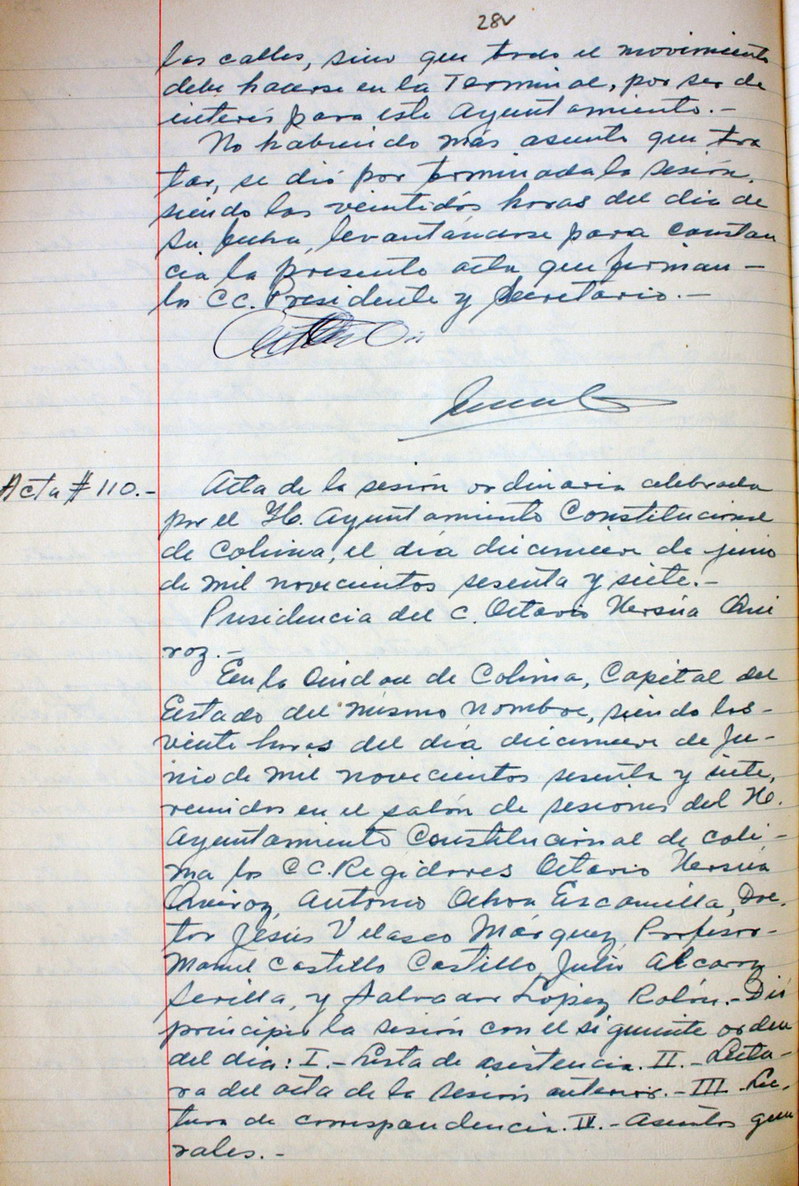 28v
las calles, sino que todo el movimiento
debe hacerse en la Terminal, por ser de
interés para este Ayuntamiento.-
No habiendo más asunto que tra
tar, se dió por terminada la sesión,
siendo las veintidós horas del día de
su fecha, levantándose para constan
cia la presente acta que firman-
los CC. Presidente y Secretario.-
Acta # 110.-
Acta de la sesión ordinaria celebrada
por el H. Ayuntamiento Constitucional
de Colima, el día diecinueve de junio
de mil novecientos sesenta y siete.-
Presidencia del C. Octavio Hersúa Qui
roz.-
En la Ciudad de Colima, Capital del
Estado del mismo nombre, siendo las-
veinte horas del día diecinueve de ju-
nio de mil novecientos sesenta y siete,
reunidos en el salón de sesiones del H.
Ayuntamiento Constitucional de Coli-
ma los CC. Regidores Octavio Hersúa
Quiroz, Antonio Ochoa Escamilla, Doc-
tor Jesús Velasco Márquez, Profesor-
Manuel Castillo Castillo, Julio Alcaroz
Sevilla, y Salvador López Rolón.- Dió
principio la sesión con el siguiente orden
del día: I.- Lista de asistencia. II.- Lectu-
ra del acta de la sesión anterior.- III.- Lec-
tura de correspondencia. IV.- Asuntos gene
rales.-